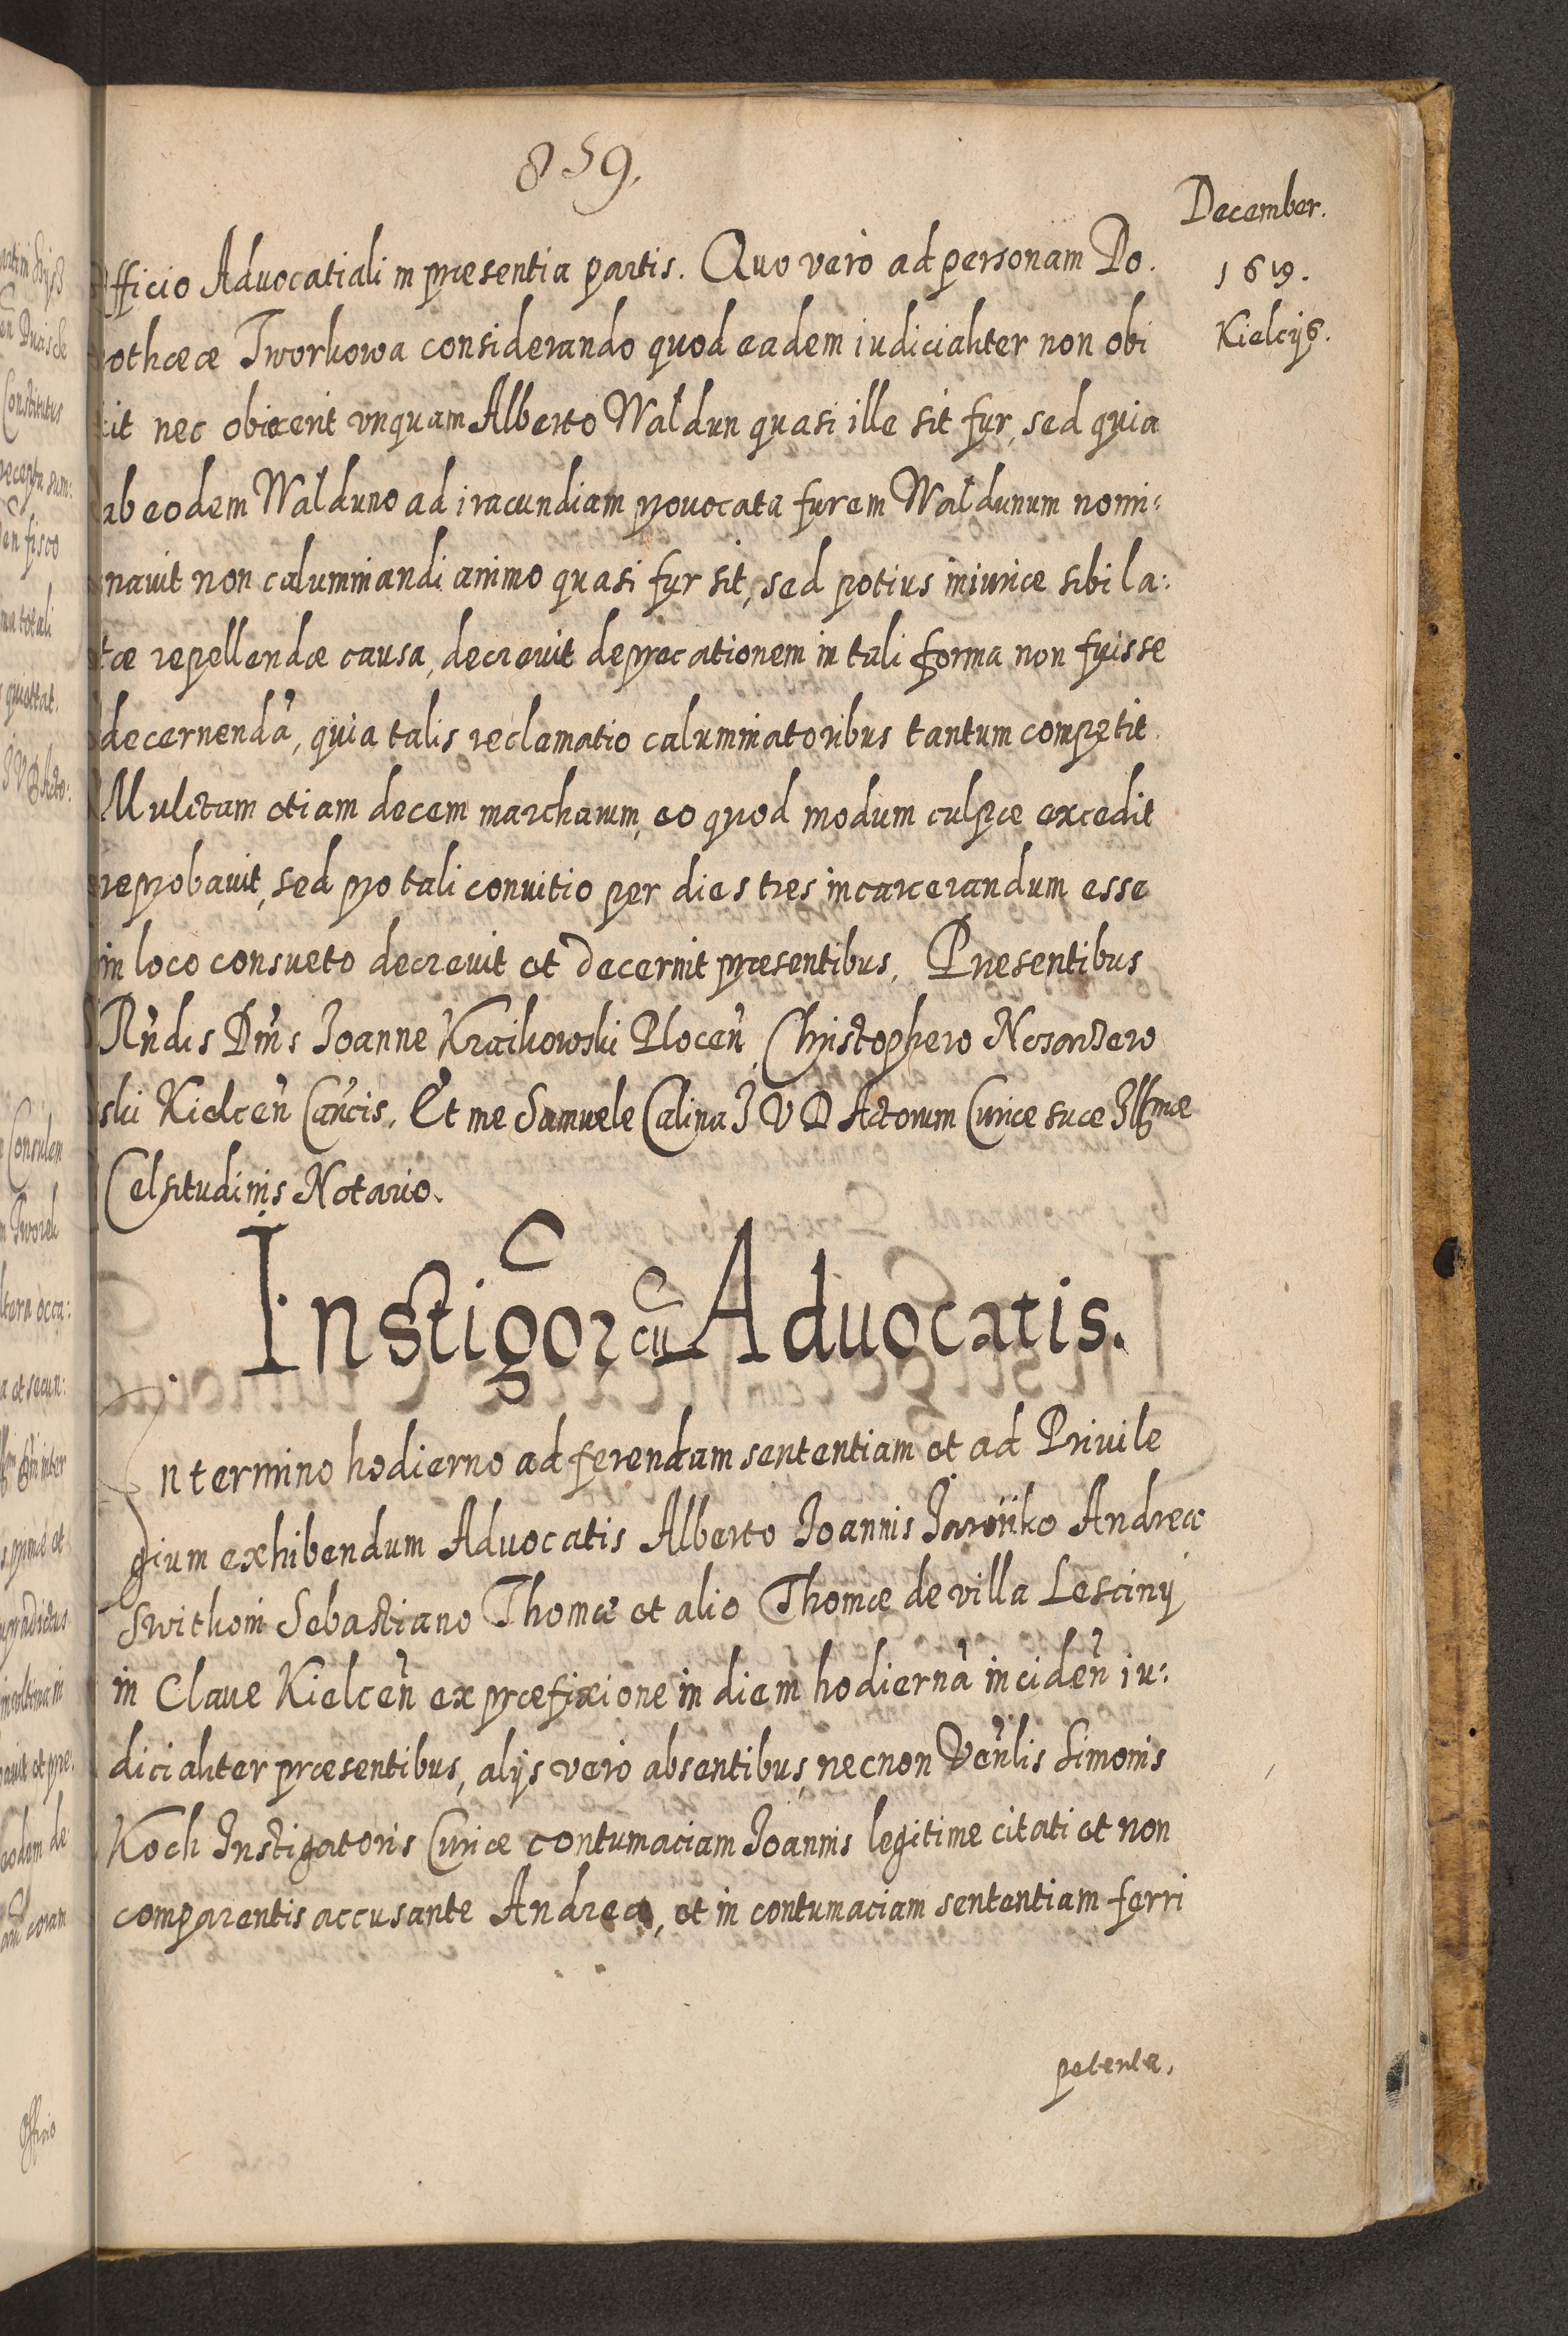 859.
December.
1619.
Kielcijs.
Officio Advocatiali in præsentia partis. Quo verò ad personam Do.
rothææ Tworkowa considerando quod eadem iudicialiter non obi
cit nec obiecerit vnquam Alberto Waldun quasi ille sit fur, sed quia
ab eodem Walduno ad iracundiam prouocata furem Waldunum nomi:
nauit non calumniandi animo quasi fur sit, sed potius iniuriæ sibi la:
tæ repellendæ causa, decreuit deprecationem in tali forma non fuisse
decernendā, quia talis reclamatio calumniatoribus tantum competit.
Mulctam etiam decem marcharum, eo quod modum culpæ excedit
reprobauit, sed pro tali convitio per dies tres incarcerandum esse
in loco consueto decreuit et decernit præsentibus. Præsentibus
Rn̄dis Dn̄is Ioanne Kraikowski Plocen̄ Christophero
ski Kielcen̄ Can̄cis. Et me Samuele Calina I V D Actorum Curiæ suæ Illmæ
Celsitudinis Notario.
Instigor cū Advocatis.
In termino hodierno ad ferendam sententiam et ad Priuile
gium exhibendum Advocatis Alberto Ioannis Andrea
Switkoni Sebastiano Thomæ et alio Thomæ de villa Lescinij
in Claue Kielcen̄ ex præfixione in diem hodiernā inciden̄ iu:
dicialiter præsentibus, alijs verò absentibus, necnon Ven̄lis Simonis
Koch Instigatoris Curiæ contumaciam Ioannis legitime citati et non
comparentis accusante Andrea, et in contumaciam sententiam ferri
petente.